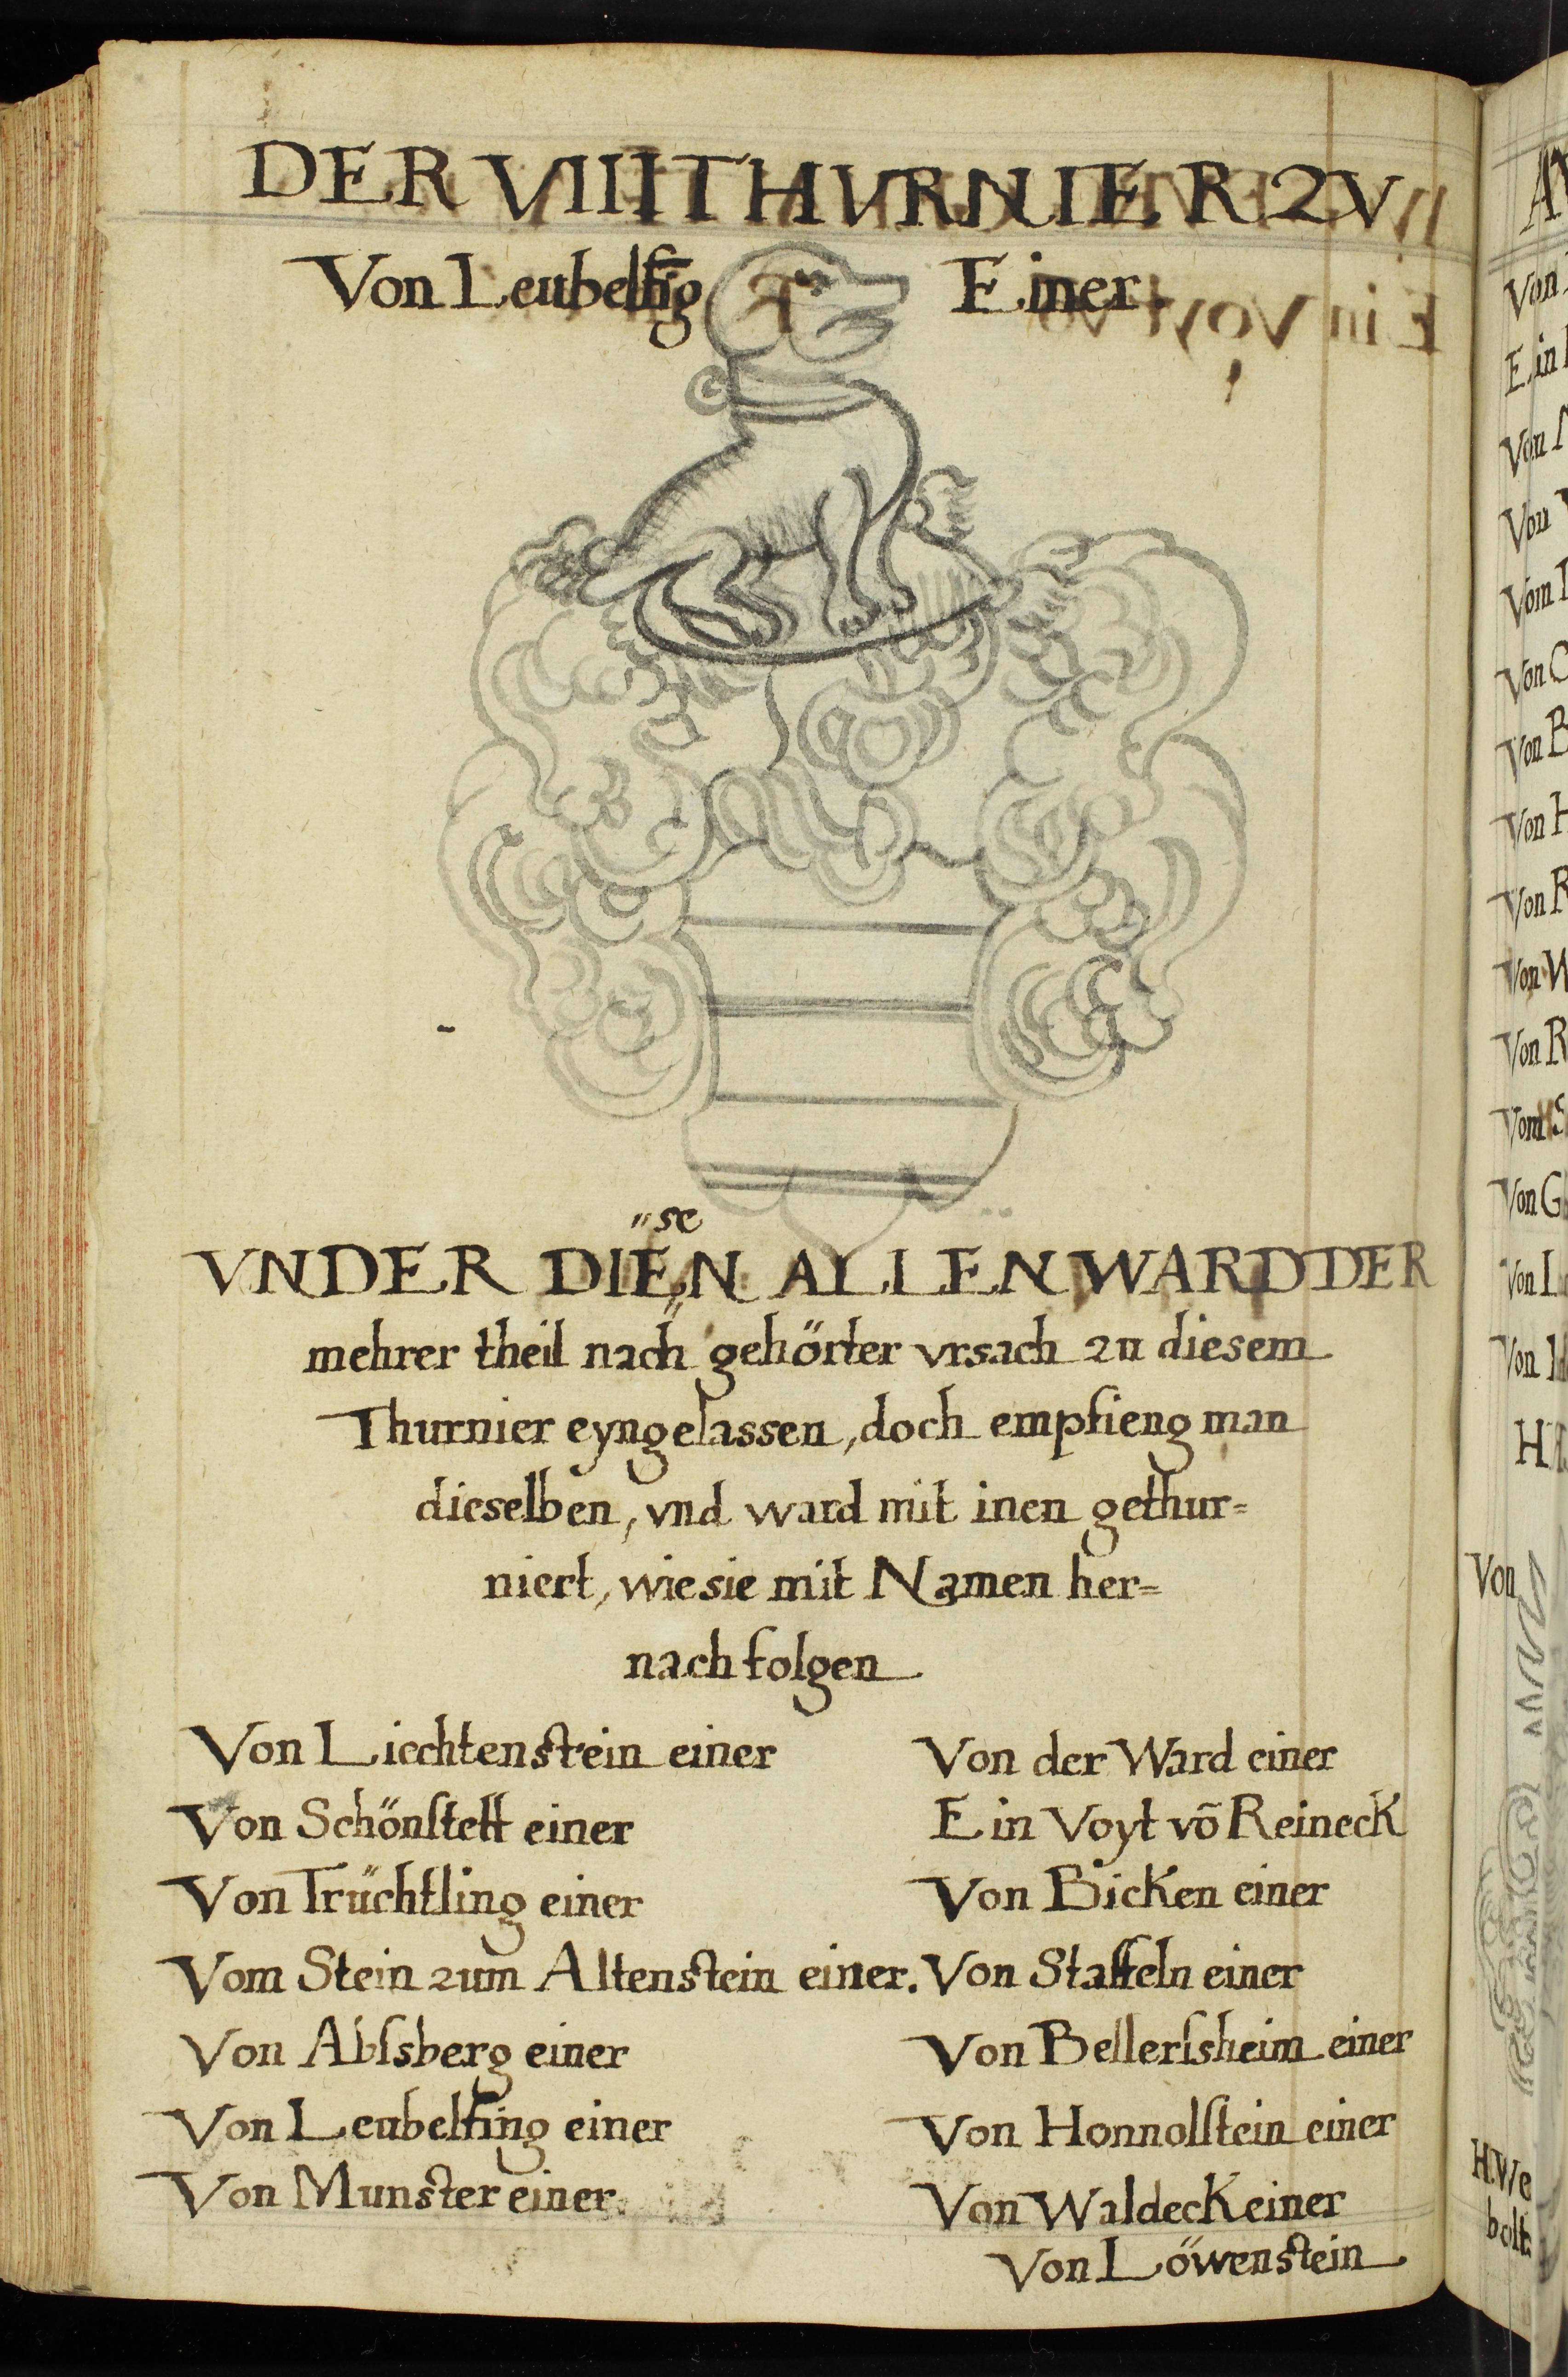 DER VIIII THVRNIER ZV
Von Leubelfig Einer.
VNDER DIËseN ALLEN WARD DER
mehrer theil nach gehörter vrsach zu diesem
Thurnier eyngelassen, doch empfieng man
dieselben, vnd ward mit inen gethur=
niert, wie sie mit Namen her=
nach folgen
Von Liechtenstein einer
Von Schönſtett einer
Von Trüchtling einer
Vom Stein zum Altenstein einer.
Von Abſsberg einer
Von Leubelfing einer
Von Munster einer.
Von der Ward einer
Ein Voyt võ Reineck
Von Bicken einer
Von Staffeln einer
Von Bellerſsheim einer
Von Honnolſtein einer
Von Waldeck einer
Von Löwenstein